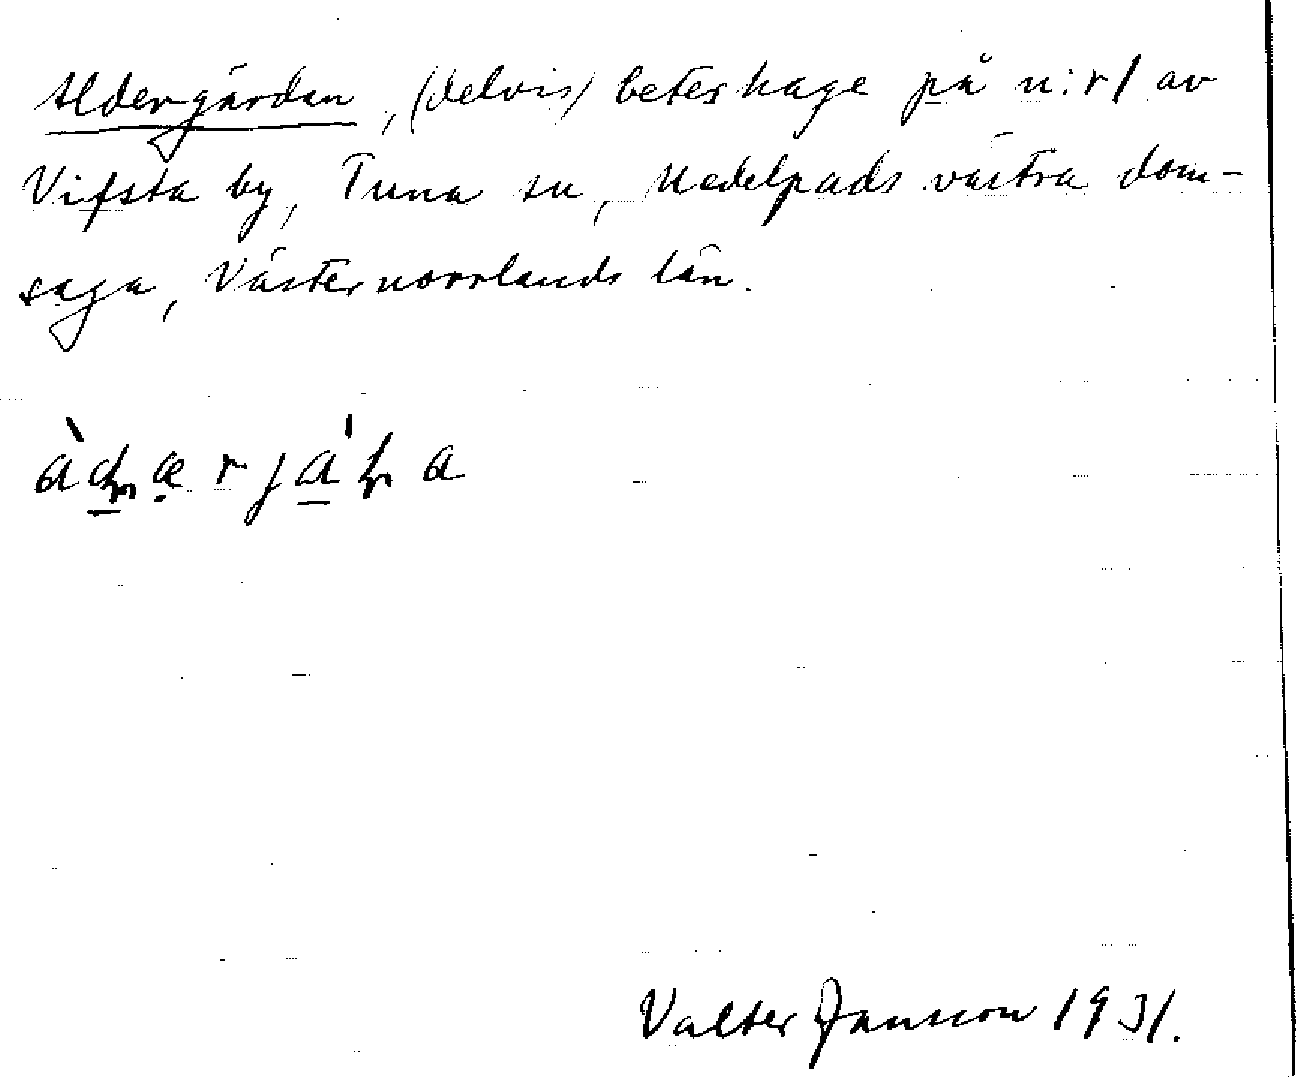 Aldergärdan, (delvis) beteshage på n:r 1 av
Vifsta by, Tuna sn, Medelpads västra dom-
saga, Västernorrlands län.
Valter Jansson 1931.